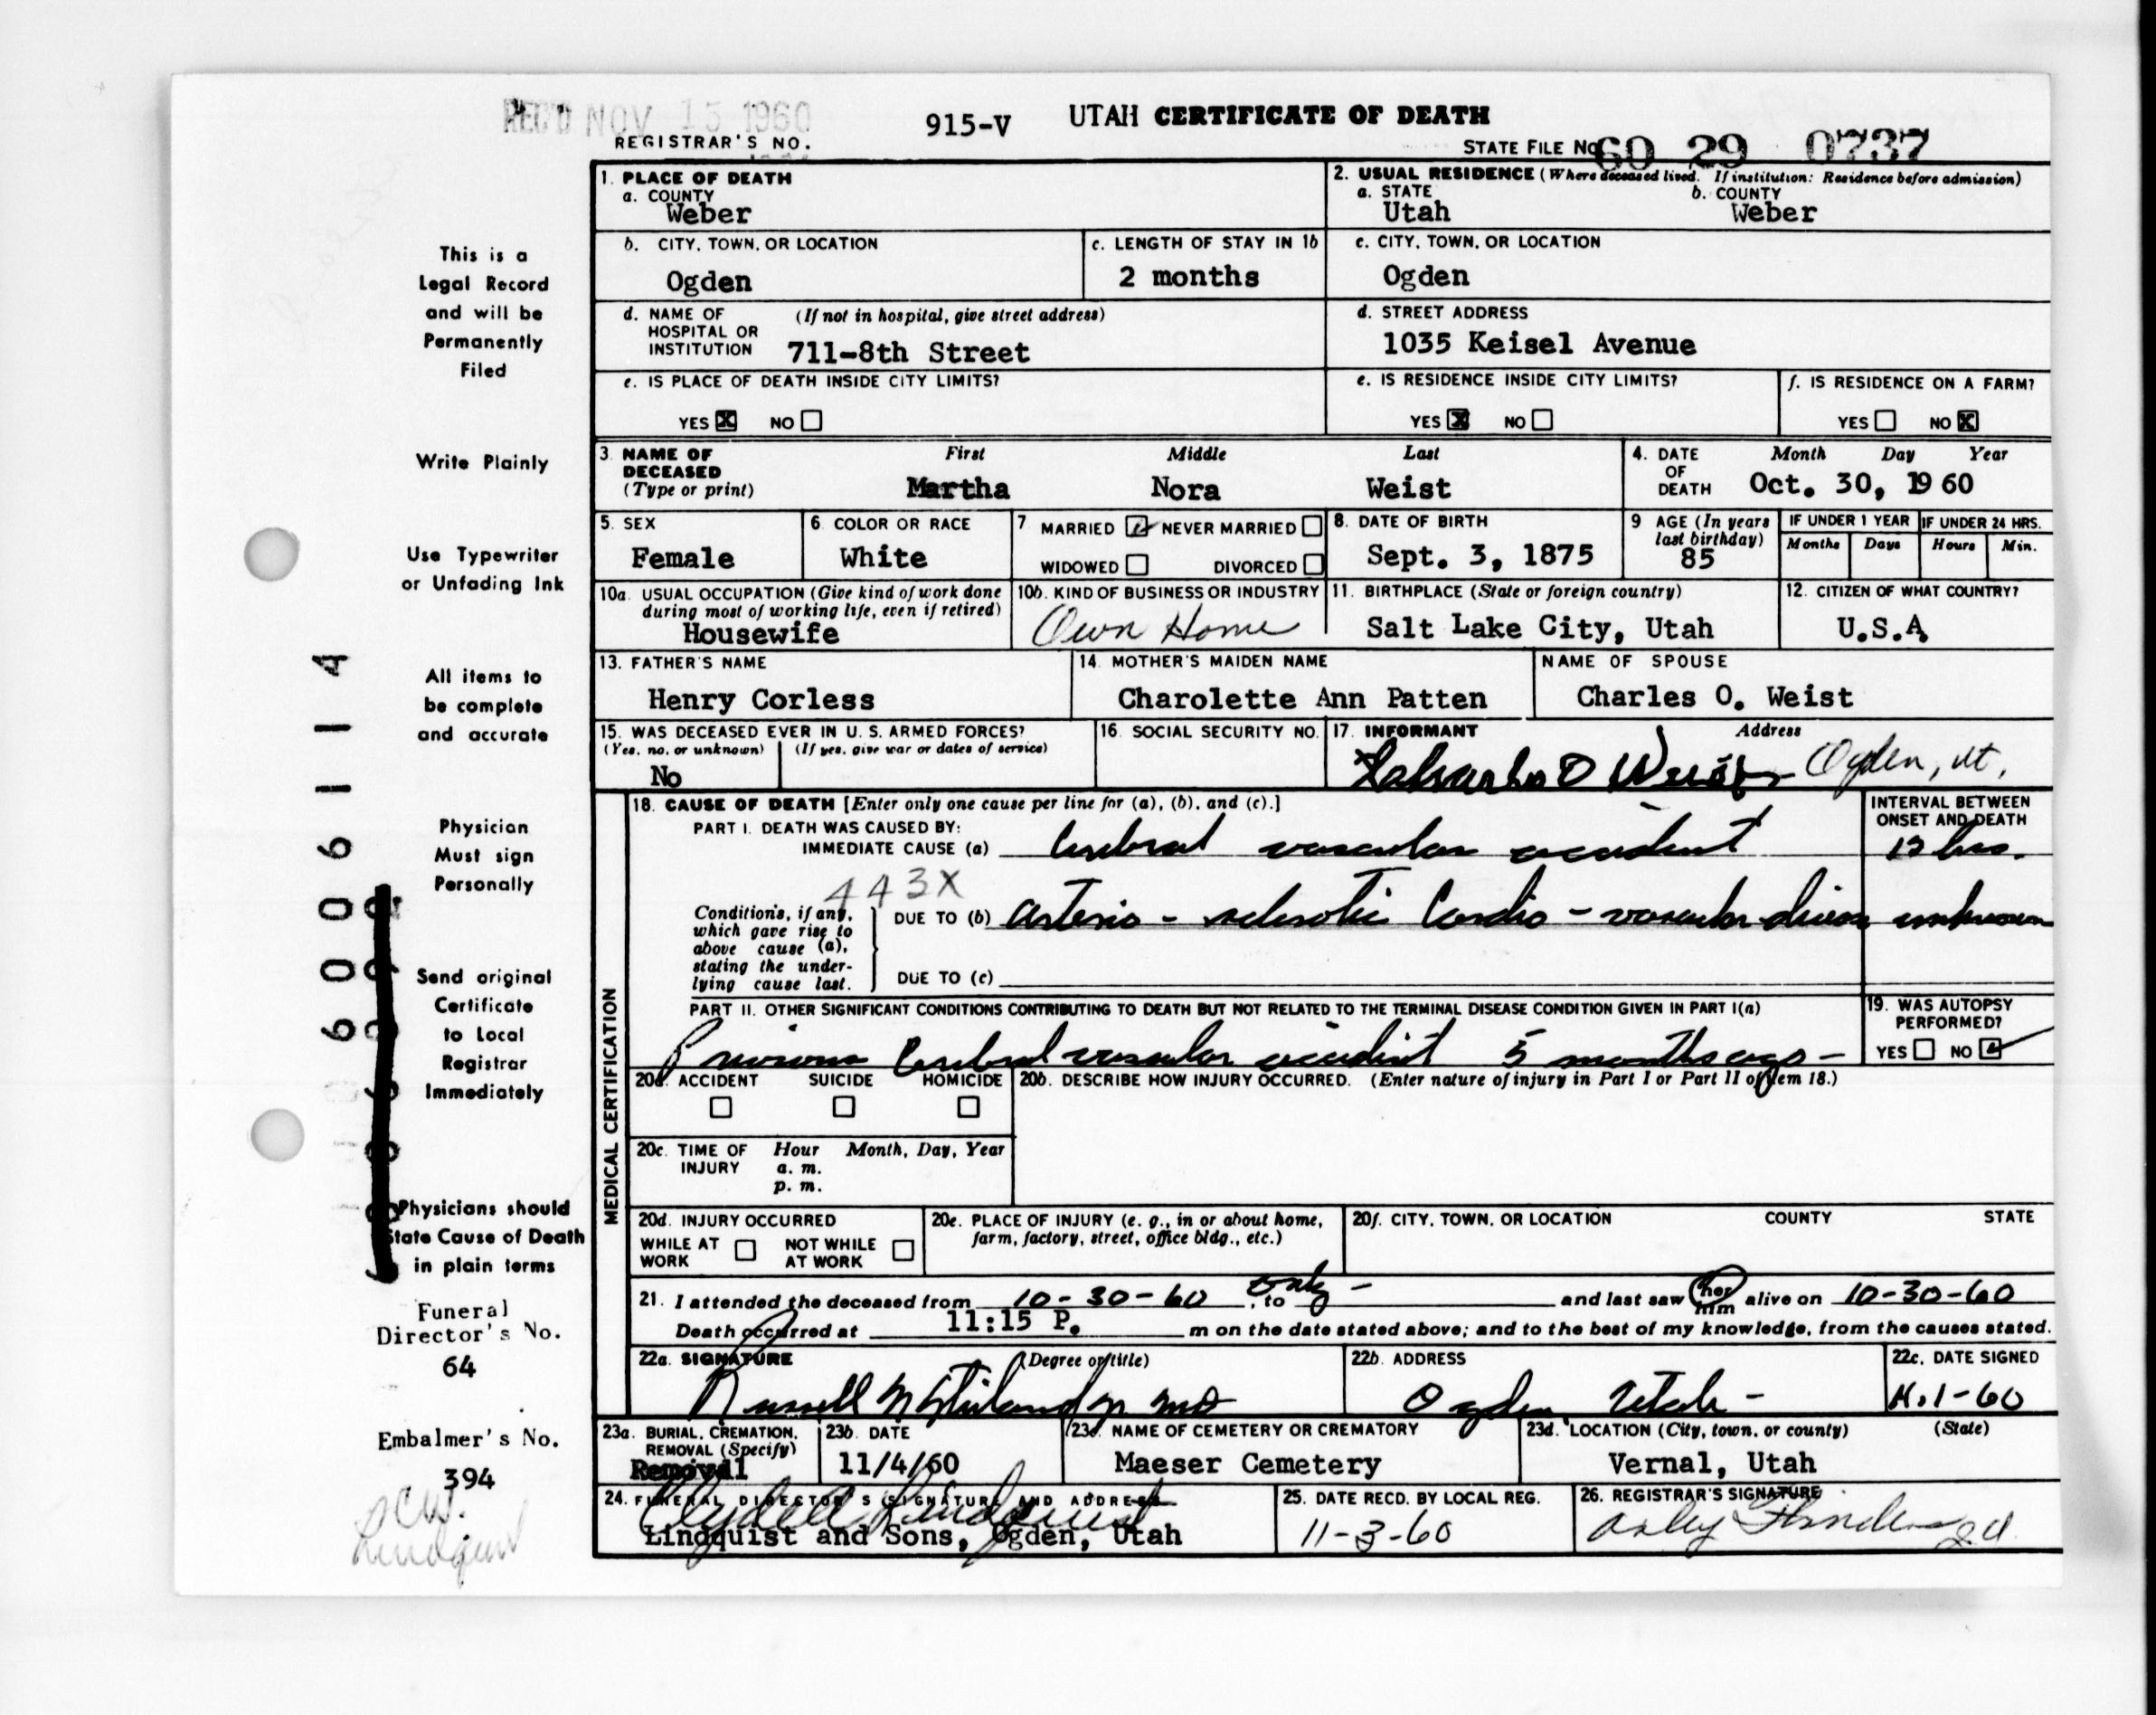 REC'D NOV 15 1960
REGISTRAR'S NO.
915-V
UTAH CERTIFICATE OF DEATH
STATE FILE No. 60 29 0737
1. PLACE OF DEATH
a. COUNTY
Weber
2. USUAL RESIDENCE (Where deceased lived. If institution: Residence before admission)
a. STATE b. COUNTY
Utah Weber
b. CITY, TOWN, OR LOCATION
Ogden
c. LENGTH OF STAY IN 1b
2 months
c. CITY, TOWN, OR LOCATION
Ogden
d. NAME OF HOSPITAL OR INSTITUTION (If not in hospital, give street address)
711-8th Street
d. STREET ADDRESS
1035 Keisel Avenue
e. IS PLACE OF DEATH INSIDE CITY LIMITS?
YES X NO
e. IS RESIDENCE INSIDE CITY LIMITS?
YES X NO
f. IS RESIDENCE ON A FARM?
YES NO X
3. NAME OF DECEASED (Type or print)
First Middle Last
Martha Nora Weist
4. DATE OF DEATH
Month Day Year
Oct. 30, 1960
5. SEX
Female
6. COLOR OR RACE
White
7 MARRIED NEVER MARRIED
WIDOWED DIVORCED
8. DATE OF BIRTH
Sept. 3, 1875
9 AGE (In years last birthday)
85
IF UNDER 1 YEAR
Months Days
IF UNDER 24 HRS.
Hours Min.
10a. USUAL OCCUPATION (Give kind of work done during most of working life, even if retired)
Housewife
10b. KIND OF BUSINESS OR INDUSTRY
Own Home
11. BIRTHPLACE (State or foreign country)
Salt Lake City, Utah
12. CITIZEN OF WHAT COUNTRY?
U.S.A.
13. FATHER'S NAME
Henry Corless
14. MOTHER'S MAIDEN NAME
Charolette Ann Patten
NAME OF SPOUSE
Charles O. Weist
15. WAS DECEASED EVER IN U. S. ARMED FORCES?
(Yes, no, or unknown) (If yes, give war or dates of service)
No
16. SOCIAL SECURITY NO.
17. INFORMANT Address
O Weist Ogden, Ut.
MEDICAL CERTIFICATION
18. CAUSE OF DEATH [Enter only one cause per line for (a), (b), and (c).]
PART I. DEATH WAS CAUSED BY:
IMMEDIATE CAUSE (a) Cerebral vascular accident
INTERVAL BETWEEN ONSET AND DEATH
hrs.
443X
Conditions, if any, which gave rise to above cause (a), stating the underlying cause last.
DUE TO (b) arterio - sclerotic Cardio - vascular disease unknown
DUE TO (c)
PART II. OTHER SIGNIFICANT CONDITIONS CONTRIBUTING TO DEATH BUT NOT RELATED TO THE TERMINAL DISEASE CONDITION GIVEN IN PART I(a)
Previous Cerebral vascular accident 5 months ago -
19. WAS AUTOPSY PERFORMED?
YES NO
20a. ACCIDENT SUICIDE HOMICIDE
20b. DESCRIBE HOW INJURY OCCURRED. (Enter nature of injury in Part I or Part II of item 18.)
20c. TIME OF INJURY Hour Month, Day, Year
a. m.
p. m.
20d. INJURY OCCURRED
WHILE AT WORK NOT WHILE AT WORK
20e. PLACE OF INJURY (e. g., in or about home, farm, factory, street, office bldg., etc.)
20f. CITY, TOWN, OR LOCATION COUNTY STATE
21. I attended the deceased from 10-30-60, to only - and last saw her him alive on 10-30-60
Death occurred at 11:15 P. m on the date stated above; and to the best of my knowledge, from the causes stated.
22a. SIGNATURE (Degree or title)
Russell MD
22b. ADDRESS
Ogden Utah -
22c. DATE SIGNED
11-1-60
23a. BURIAL, CREMATION, REMOVAL (Specify)
Removal
23b. DATE
11/4/60
23c. NAME OF CEMETERY OR CREMATORY
Maeser Cemetery
23d. LOCATION (City, town, or county) (State)
Vernal, Utah
24. FUNERAL DIRECTOR'S (SIGNATURE AND ADDRESS
Clydell Lindquist
Lindquist and Sons, Ogden, Utah
25. DATE RECD. BY LOCAL REG.
11-3-60
26. REGISTRAR'S SIGNATURE
This is a
Legal Record
and will be
Permanently
Filed
Write Plainly
Use Typewriter
or Unfading Ink
All items to
be complete
and accurate
Physician
Must sign
Personally
Send original
Certificate
to Local
Registrar
Immediately
Physicians should
State Cause of Death
in plain terms
Funeral
Director's No.
64
Embalmer's No.
394
Lindquist
60061114